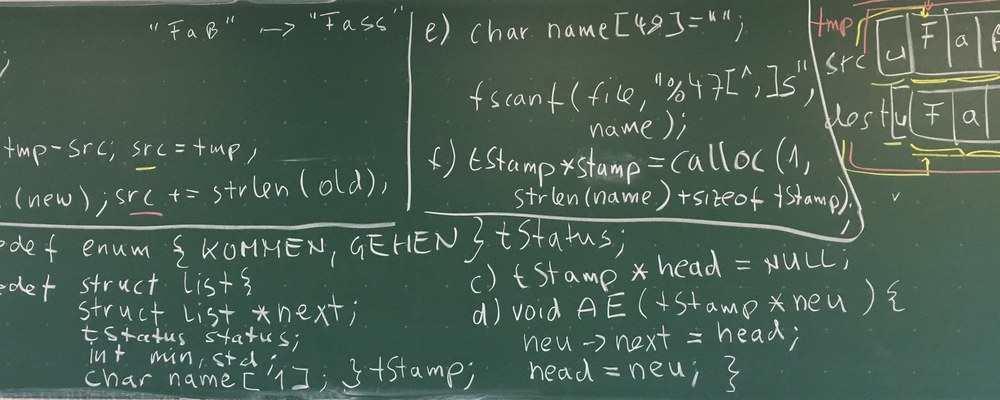 "FaB" --> "Fass"
;
tmp-src; src=tmp;
(new); src += strlen(old);
e) char name[48]="";
fscanf(file, "%47[^,]s",
name);
f) tStamp *stamp = calloc(1,
strlen(name)+sizeof tStamp);
tmp
src u F a
dest u F a
def enum { KOMMEN, GEHEN } tStatus;
def struct list{
struct list *next;
tStatus status;
int min, std;
char name[1]; } tStamp;
c) tStamp * head = NULL;
d) void AE (tStamp * neu) {
neu -> next = head;
head = neu; }